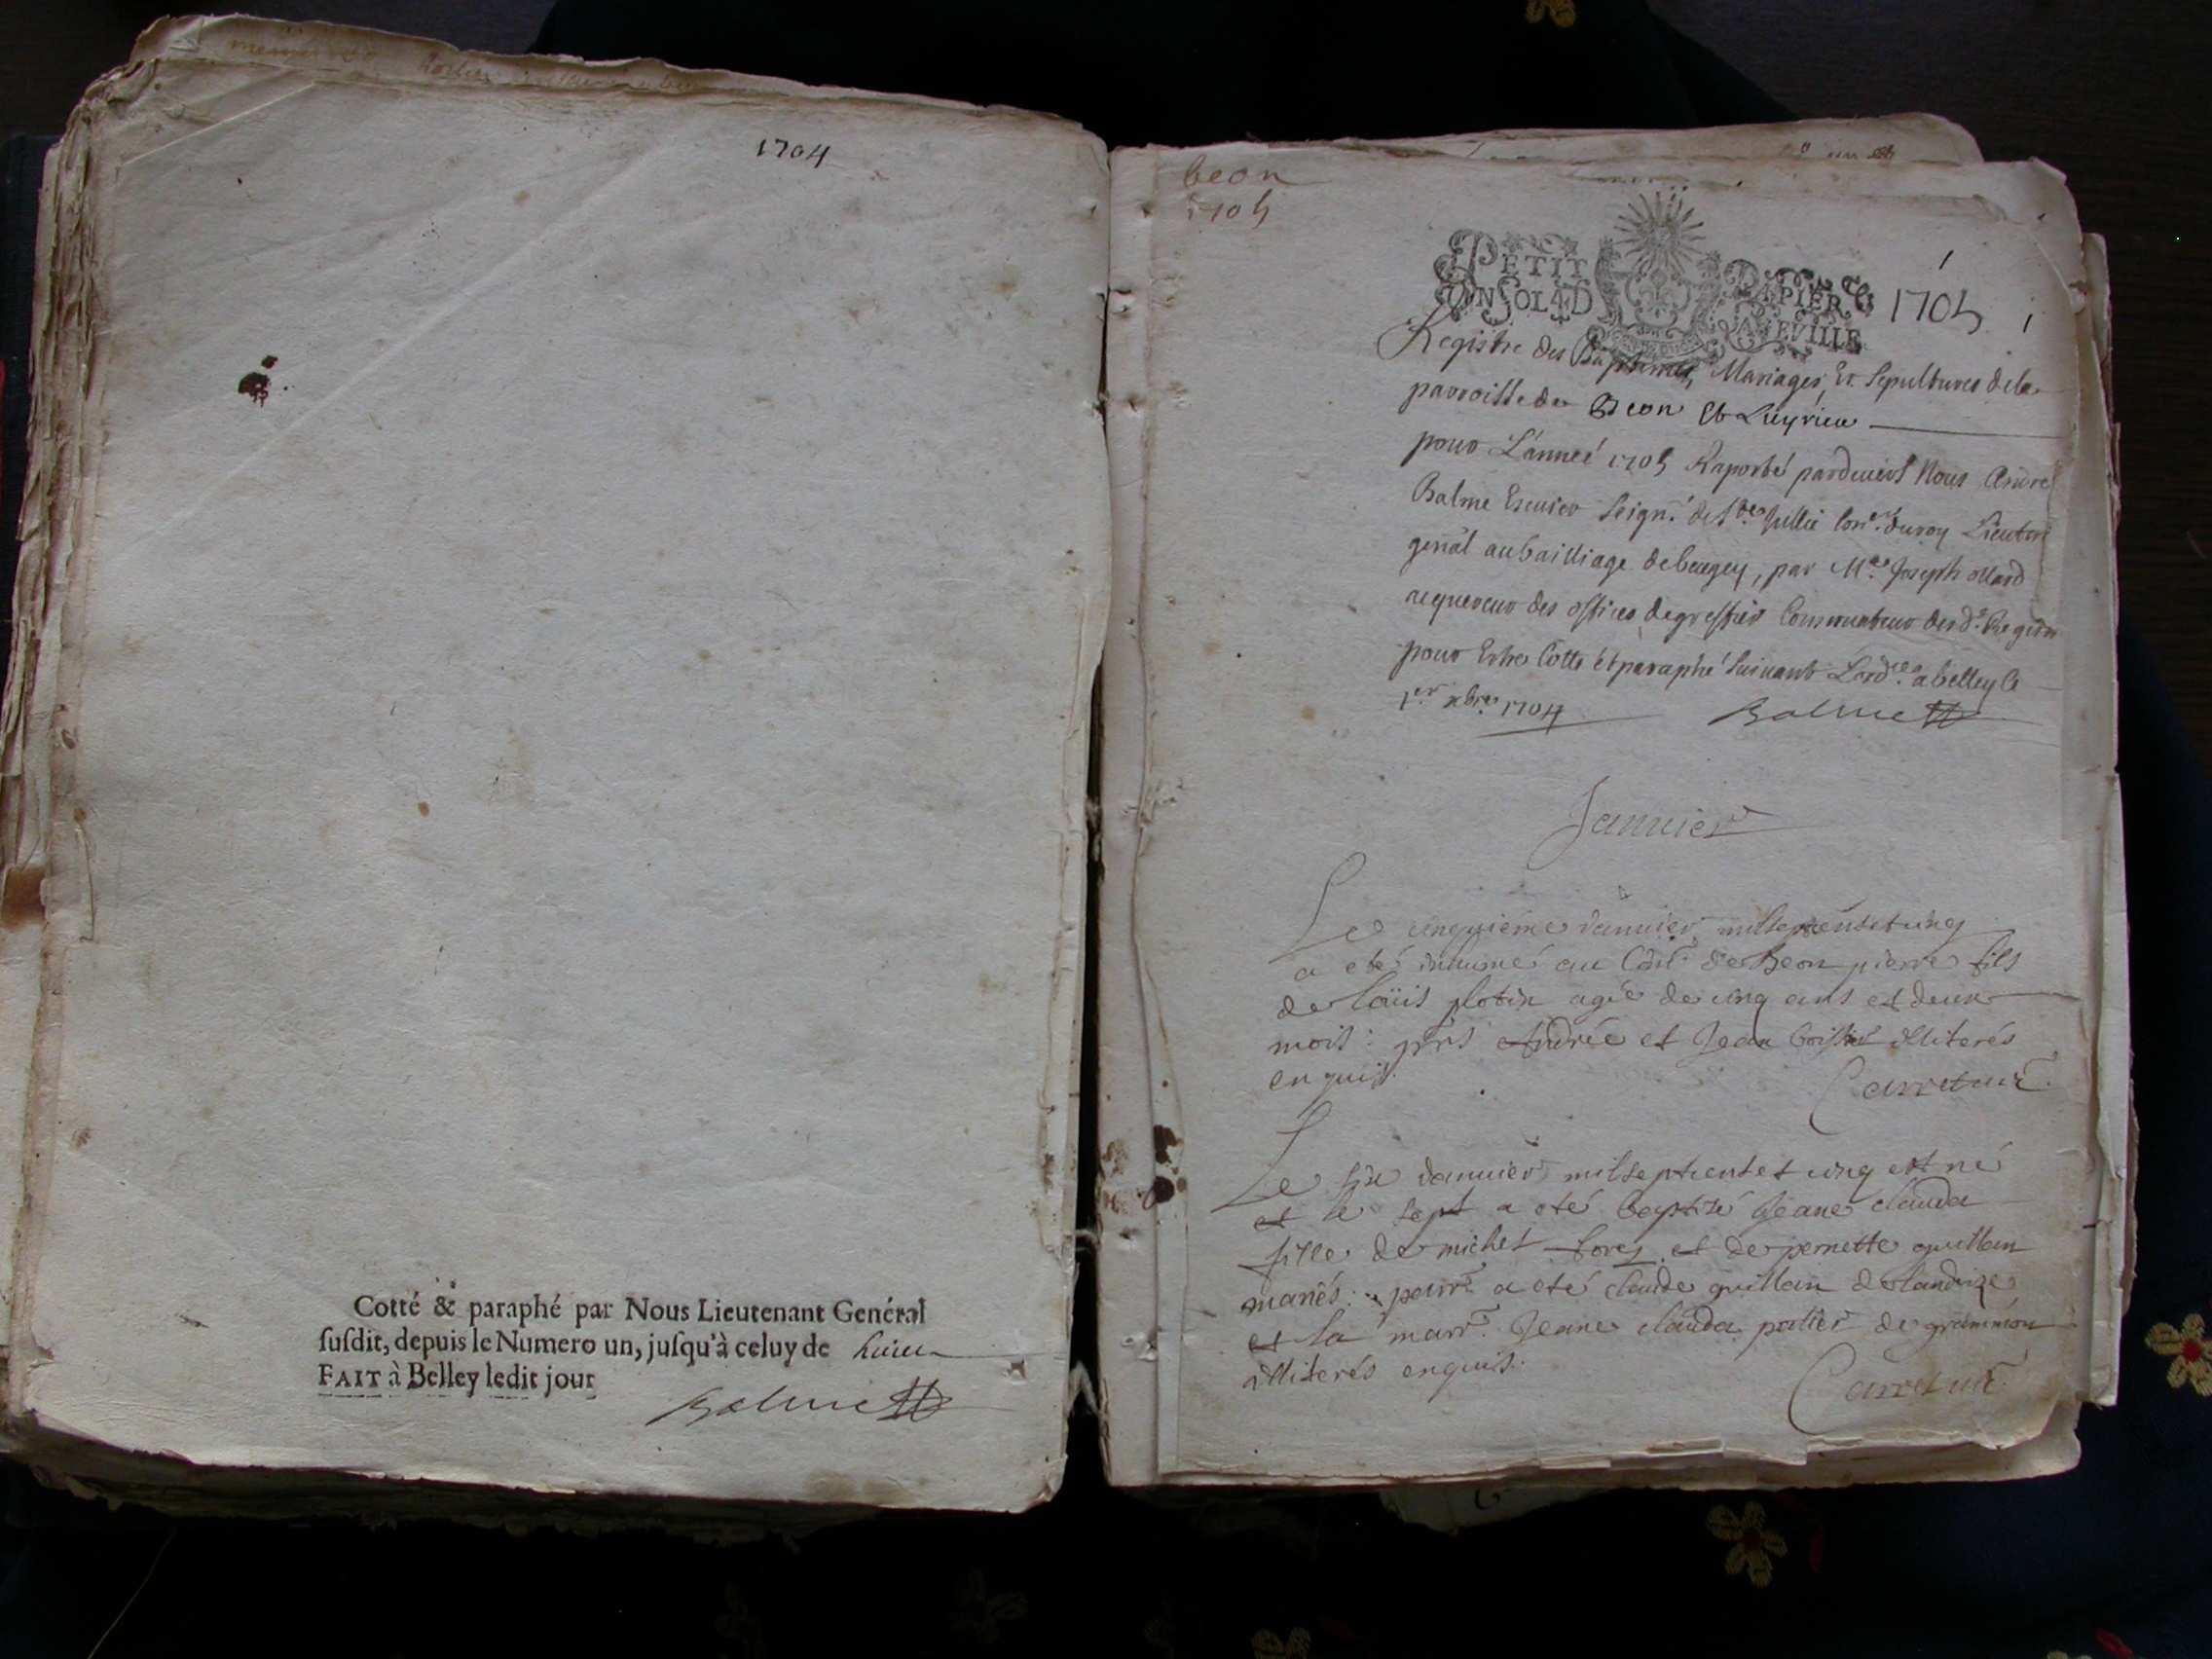 1704
Cotté & paraphé par Nous Lieutenant General
susdit, depuis le Numero un, jusqu'à celuy de huict
FAIT à Belley ledit jour
Balme
beon
1705
PETIT PAPIER
UN SOL 4 D LA FEVILLE
1705
Registre des Baptsmes, Mariages, Et Sepultures dela
parroisse de Beon Et Luyrieu
pour L'anneé 1705 Raporté pardevers Nous André
Balme Escuier Seign.r de S.te Jullie Con.er du roy Lieuten
genãl au bailliage de beugey, par M.re Joseph
acquereur des offices de greffier Conservateur desd.s Registr
pour Estre Cotté et paraphé suivant L'ord.ce a belley le
1.er xbre 1704
Balme
Januier
Le cinquieme Januier mil sept cent et cinq
a eté inhumé au Cim.re de Beon pierre fils
de loüis plotin agé de cinq ans et deux
mois : pñts André et Jean illiterés
enquis.
Carret curé.
Le six Januier mil sept cent et cinq est né
et le sept a eté baptizé Jeane clauda
fille de michel et de pernette guillon
mariés : parr. a eté claude guillon de landaize
et la marr. Jeane clauda pottier de grammon
illiterés enquis.
Carret curé